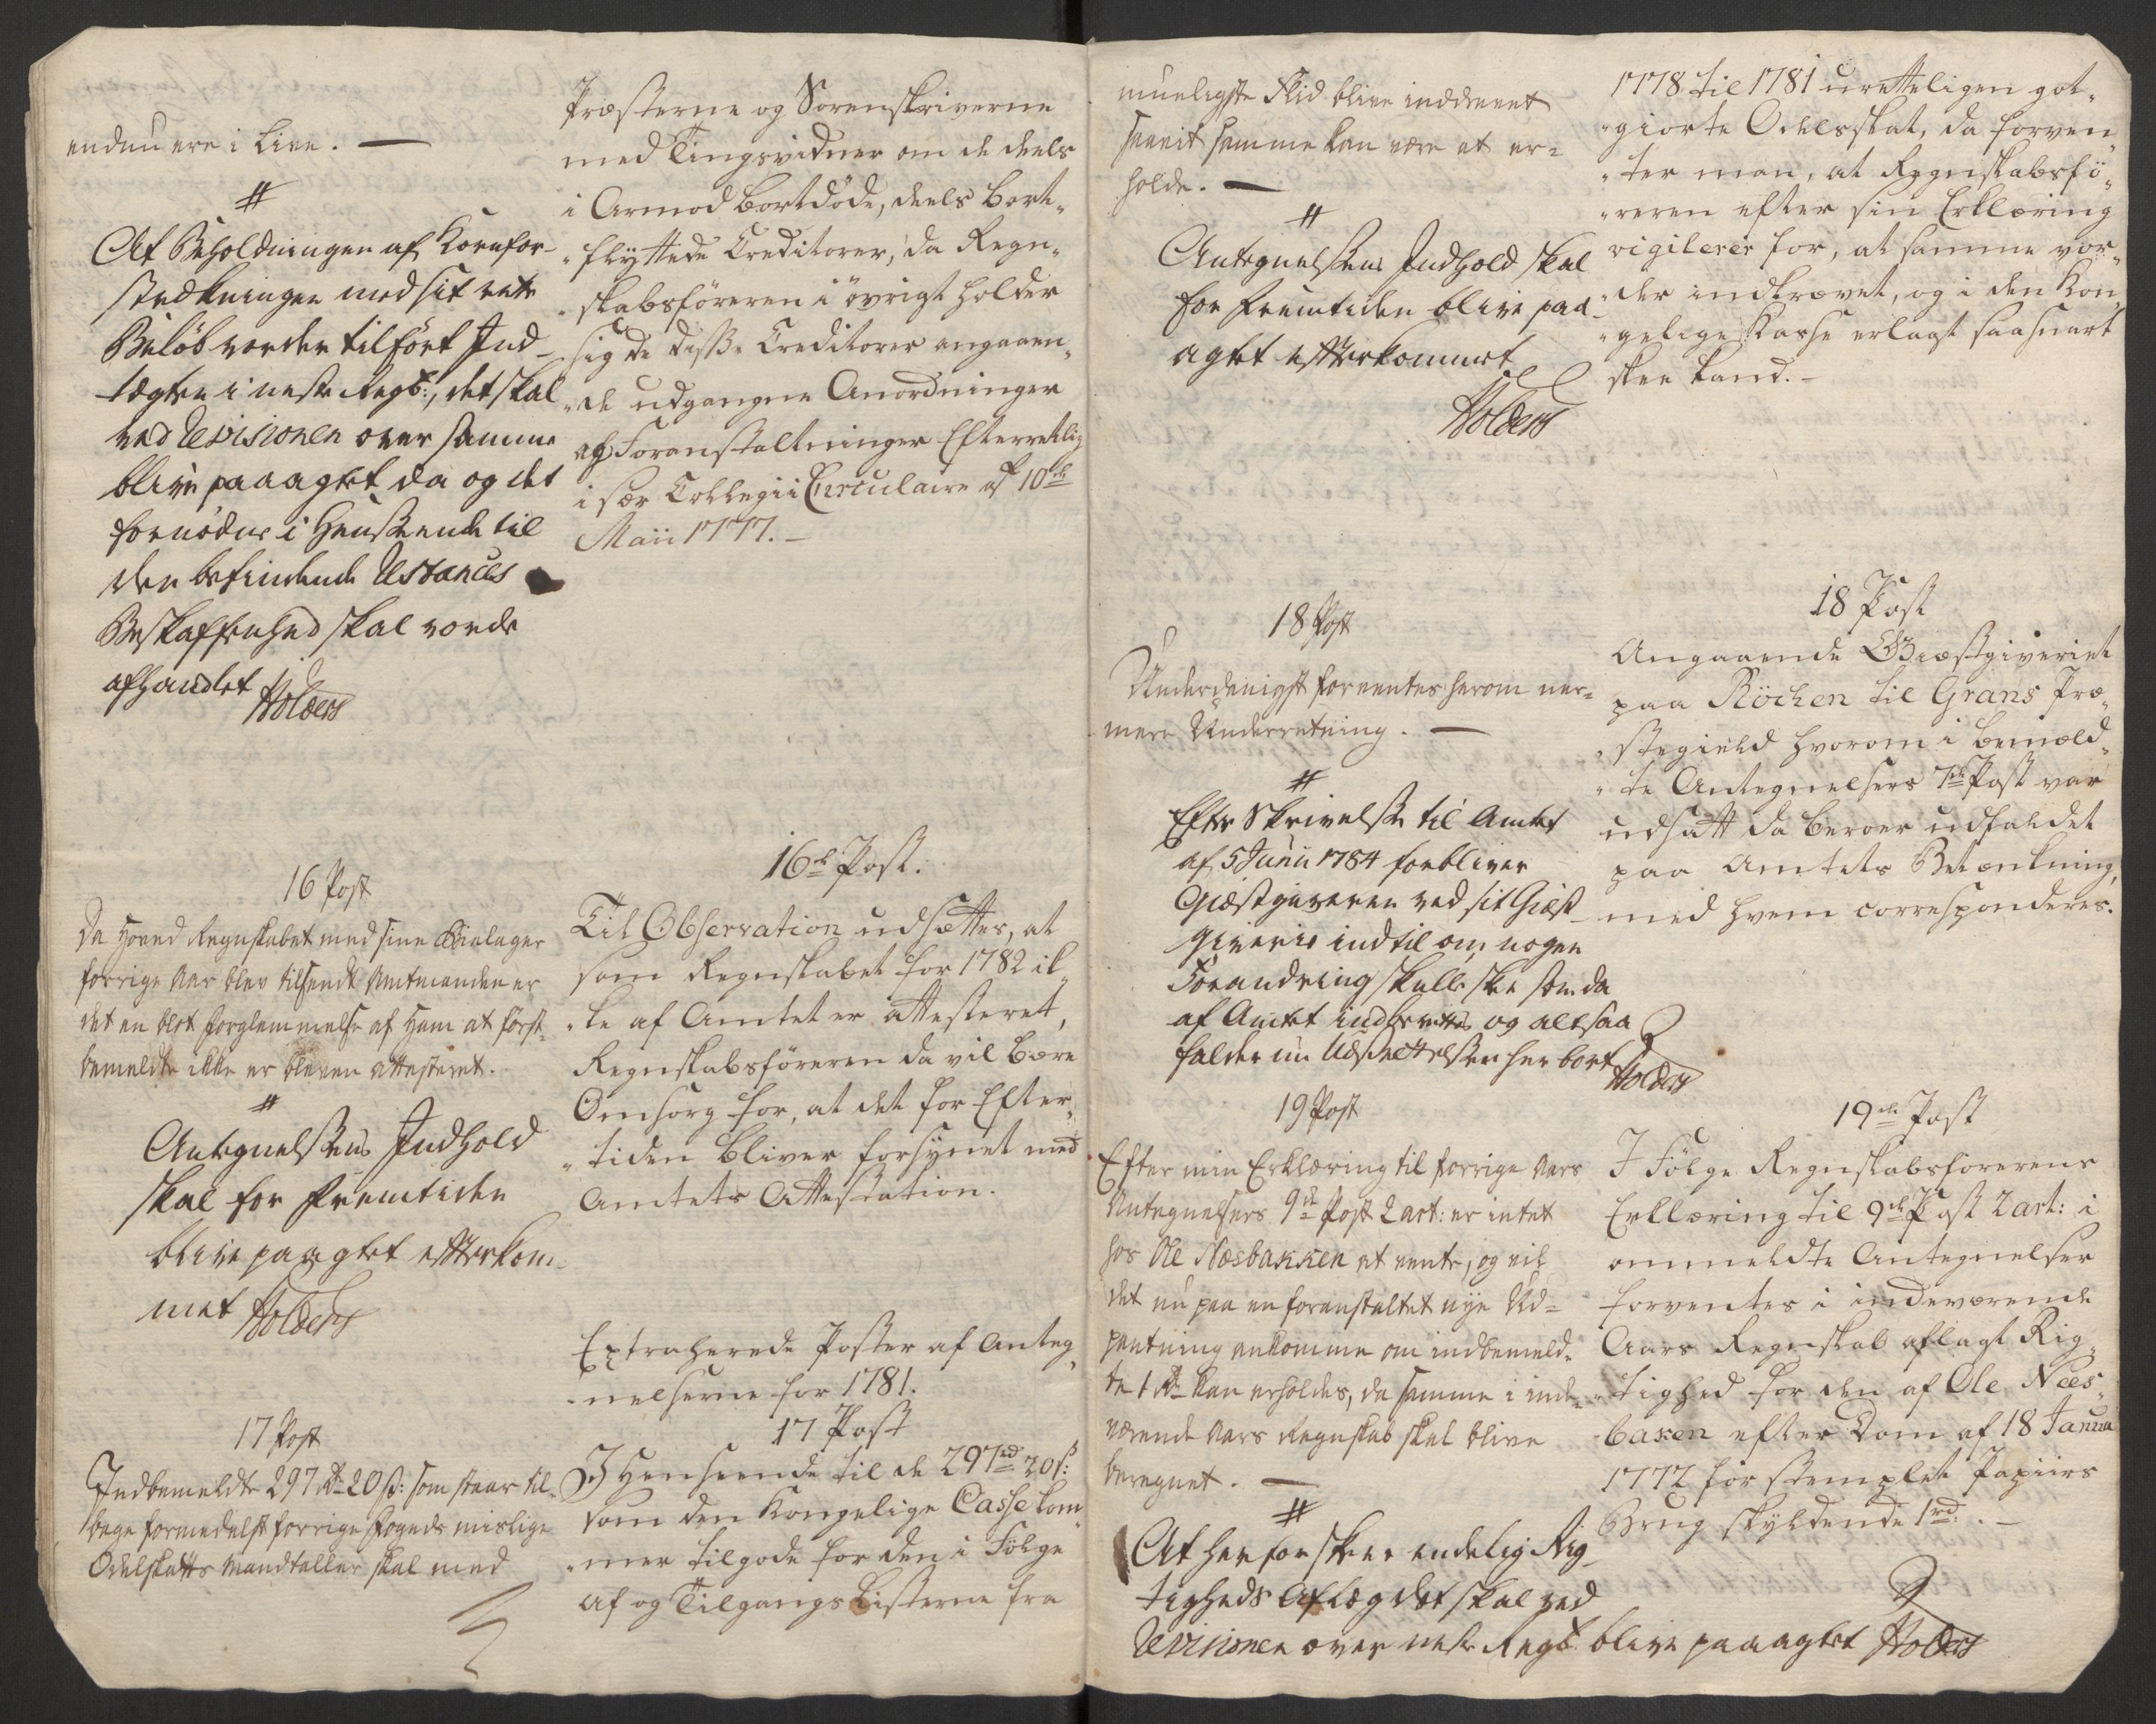 endnu ere i Live. —
#
At Beholdningen af Kornfor-
strækningen med sit rette
Beløb vorder tilført Ind-
tægten i neste Regsk:, det skal
ved Revisionen over samme
blive paaagtet, da og det
fornødne i Henseende til
den befindende Restances
Beskaffenhed skal vorde
afhandlet
Holders
16 Post
Da Hoved Regnskabet med sine Bielager
forrige Aar blev tilsendt Amtmanden er
det en blot Forglemmelse af Ham at først-
bemeldte ikke er bleven attesteret.
#
Antegnelsens Indhold
skal for Fremtiden
blive paagtet efterkom-
met Holders
17 Post
Indbemeldte 297 rd 20 s: som staar til-
bage formedelst forrige Fogeds mislige
Odelskatts Mandtaller skal med
Præsterne og Sorenskriverne
med Tingsvidner om de deels
i Armod bortdöde, deels bort-
„flyttede Creditorer, da Regn-
„skabsföreren i övrigt holder
sig de disse Creditorer angaaen-
„de udgangne Anordninger
og Foranstaltninger Efterrettelig
i sær Collegii Circulaire af 10de
Maii 1777. –
16de Post.
Til Observation udsættes, at
som Regnskabet for 1782 ik-
„ke af Amtet er attesteret,
Regnskabsföreren da vil bære
Omsorg for, at det for Efter-
„tiden bliver forsynet med
Amtets Attestation.
Extraherede Poster af Anteg-
„nelserne for 1781.
17 Post
I Henseende til de 297 rd 20 s:
som den Kongelige Casse kom-
„mer tilgode for den i Fölge
af og Tilgangs Listerne fra
mueligste Flid blive inddrevet
saavit samme kan være at er=
holde. —
#
Antegnelsens Indhold skal
for Fremtiden blive paa-
agtet efterkommet
Holders
18 Post
Underdanigst forventes herom ner=
mere Underretning. —
#
Efter Skrivelse til Amtet
af 5 Junii 1784 forbliver
Giæstgiveren ved sit Giæst-
giverie indtil om nogen
Forandring skulle skee som da
af Amtet indberettes og altsaa
falder nu Udsættelsen her bort
Holders
19 Post
Efter min Erklæring til forrige Aars
Antegnelsers 9de Post 2 art: er intet
hos Ole Næsbakken at vente, og vil
det nu paa en foranstaltet nye Ud=
pantning ankomme om indbemeld-
te 1 rd kan erholdes, da samme i inde-
værende Aars Regnskab skal blive
beregnet. —
#
At her for skeer endelig Rig-
tigheds Aflæg det skal ved
Revisionen over neste Regsk. blive paaagtet Holders
1778 til 1781 uretteligen got-
„giorte Odelsskat, da forven-
„ter man, at Regnskabsfö-
„reren efter sin Erklæring
vigilerer for, at samme vor-
„der indkrævet, og i den Kon-
„gelige Kasse erlagt saasnart
skee kand. –
18 Post
Angaaende Giæstgiveriet
paa Röchen til Grans Præ-
„stegield hvorom i bemeld-
„te Antegnelsers 7de Post var
udsatt da beroer udfaldet
paa Amtets Betænkning,
med hvem corresponderes.
19de Post
I Fölge Regnskabsförerens
Erklæring til 9de Post 2 art: i
ommeldte Antegnelser
forventes i indeværende
Aars Regnskab aflagt Rig-
„tighed for den af Ole Nees-
„baken efter Dom af 18 Janua
1772 for stemplet Papiirs
Brug skyldende 1 rd. –